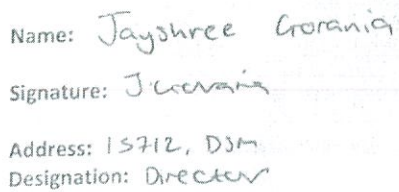 Name: Jayshree Gorania
Signature: J. Gorania
Address: 15712, DSM
Designation: Director